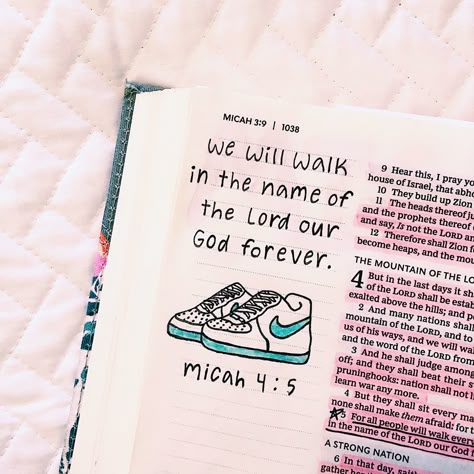 MICAH 3:9 | 1038
we will walk
in the name of
the Lord our
God forever.
micah 4:5
9 Hear this, I pray you
house of Israel, that abh
10 They build up Zion
11 The heads thereof ju
and the prophets thereof
and say, Is not the LORD a
12 Therefore shall Zion f
become heaps, and the mou
THE MOUNTAIN OF THE LO
4 But in the last days it s
of the LORD shall be esta
exalted above the hills; and p
2 And many nations shal
mountain of the LORD, and to
us of his ways, and we will walk
and the word of the LORD from
3 And he shall judge among
off; and they shall beat their s
pruninghooks: nation shall not l
learn war any more.
4 But they shall sit every ma
none shall make them afraid: for t
5 For all people will walk every
in the name of the LORD our God
A STRONG NATION
6 In that day, saith
gather her